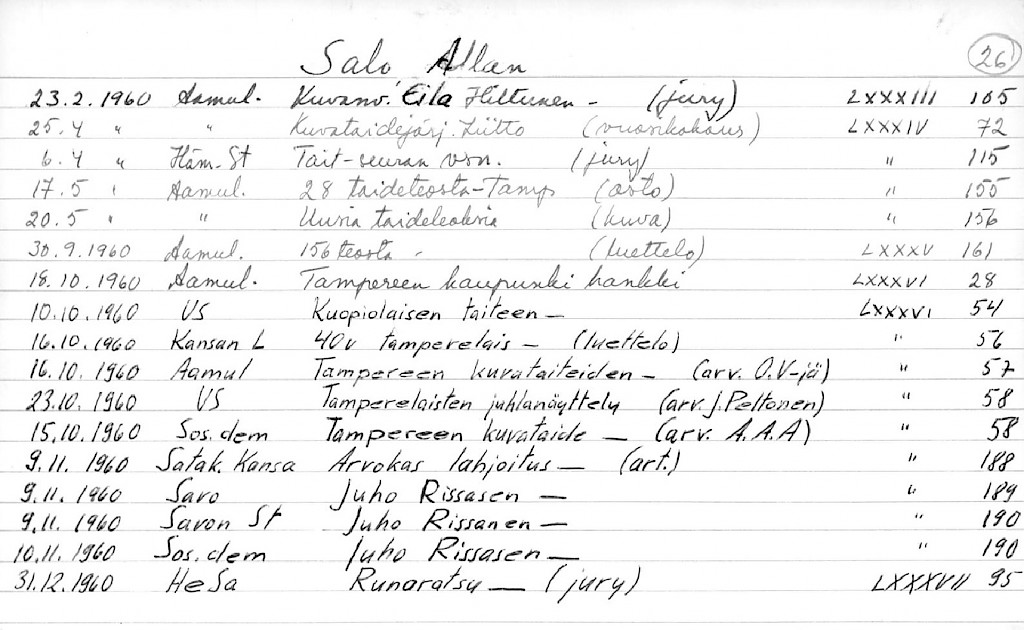 Salo Allan 26
23.2.1960 Aamul. Kuvanv. Eila Hiltunen – (jury) LXXXIII 105
25.4 " " Kuvataidejärj. Liitto (vuosikokous) LXXXIV 72
6.4 " Häm. St Tait-seuran vsn. (jury) " 115
17.5 " Aamul. 28 taideteosta–Tamp (osto) " 155
20.5 " " Uusia taideteoksia (kuva) " 156
30.9.1960 Aamul. 156 teosta – (luettelo) LXXXV 161
18.10.1960 Aamul. Tampereen kaupunki hankki LXXXVI 28
10.10.1960 US Kuopiolaisen taiteen – LXXXVI 54
16.10.1960 Kansan L 40v tamperelais – (luettelo) " 56
16.10.1960 Aamul Tampereen kuvataiteiden – (arv. O.V-jä) " 57
23.10.1960 US Tamperelaisten juhlanäyttely (arv. J. Peltonen) " 58
15.10.1960 Sos.dem Tampereen kuvataide – (arv. A.A.A) " 58
9.11.1960 Satak. Kansa Arvokas lahjoitus – (art.) " 188
9.11.1960 Savo Juho Rissasen – " 189
9.11.1960 Savon St Juho Rissanen – " 190
10.11.1960 Sos.dem Juho Rissasen – " 190
31.12.1960 HeSa Runoratsu – (jury) LXXXVII 95